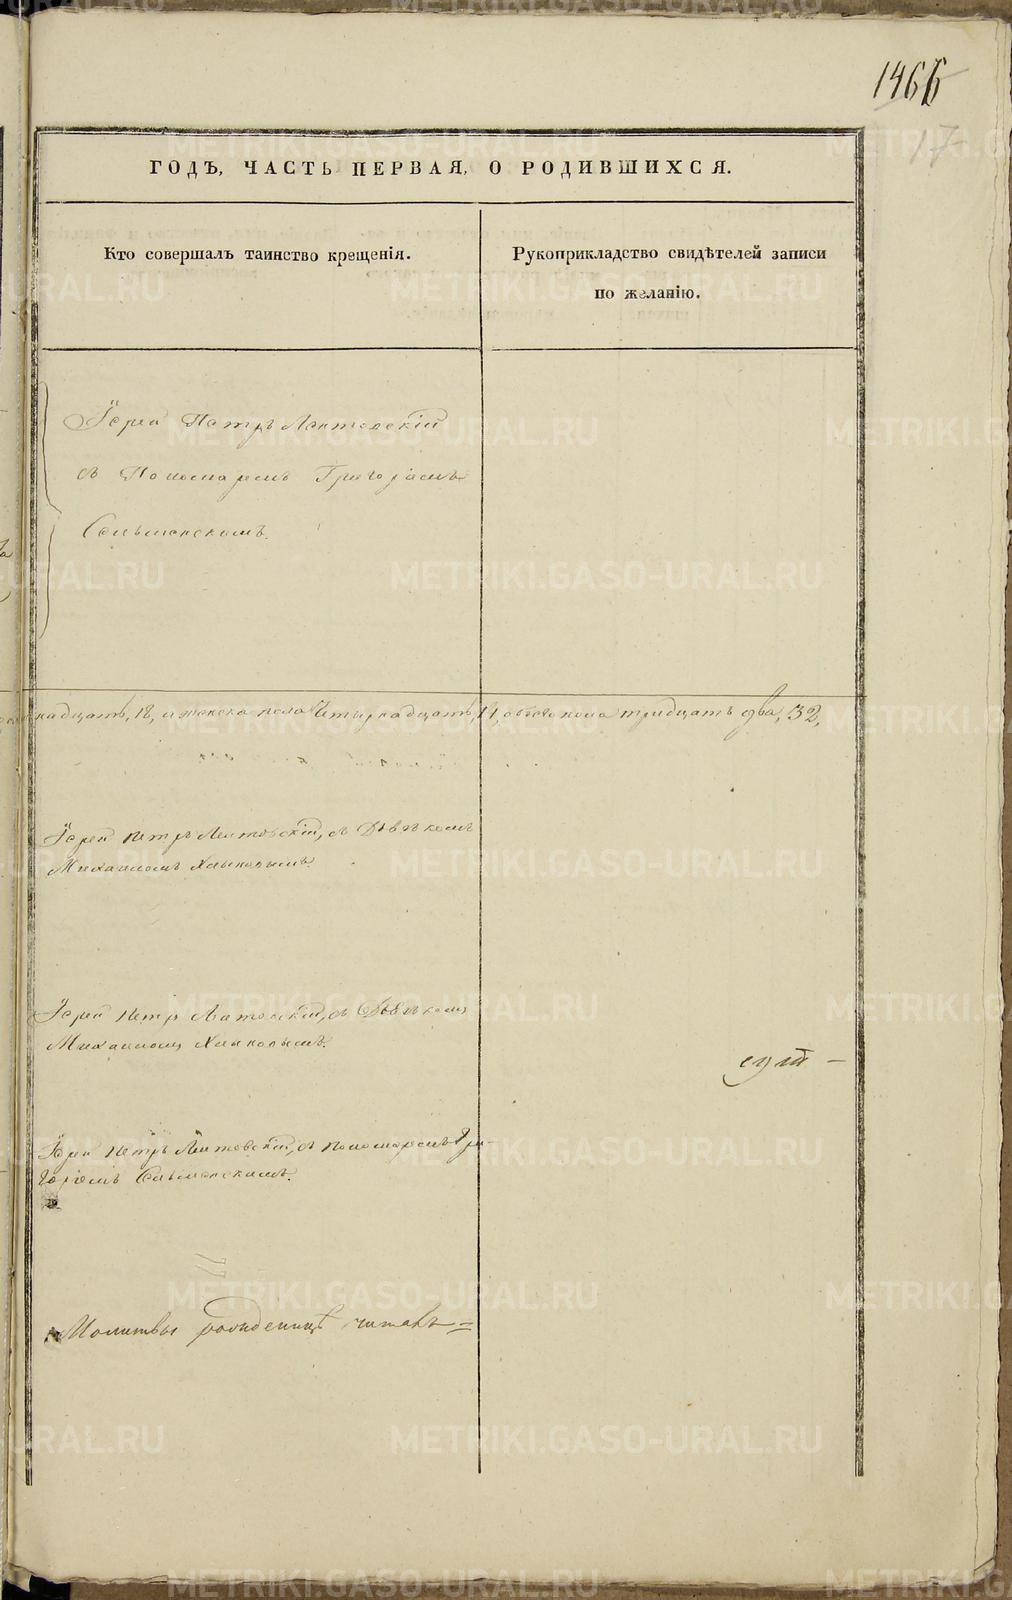 1466
17
ГОДЪ, ЧАСТЬ ПЕРВАЯ, О РОДИВШИХСЯ.
Кто совершалъ таинство крещенія.
Рукоприкладство свидѣтелей записи
по желанію.
Іерей Петръ
съ Пономаремъ Григоріемъ
надцать, 18, и женска пола Четырнадцать, 14, обоего пола тридцать два, 32,
Іерей Петръ съ Дьячкомъ
Михаиломъ Хлыновымъ.
Іерей Петръ съ Дьячкомъ
Михаиломъ Хлыновымъ.
Іерей Петръ съ Пономаремъ Гри-
горіемъ
Молитвы родиницѣ читалъ
METRIKI.GASO-URAL.RU